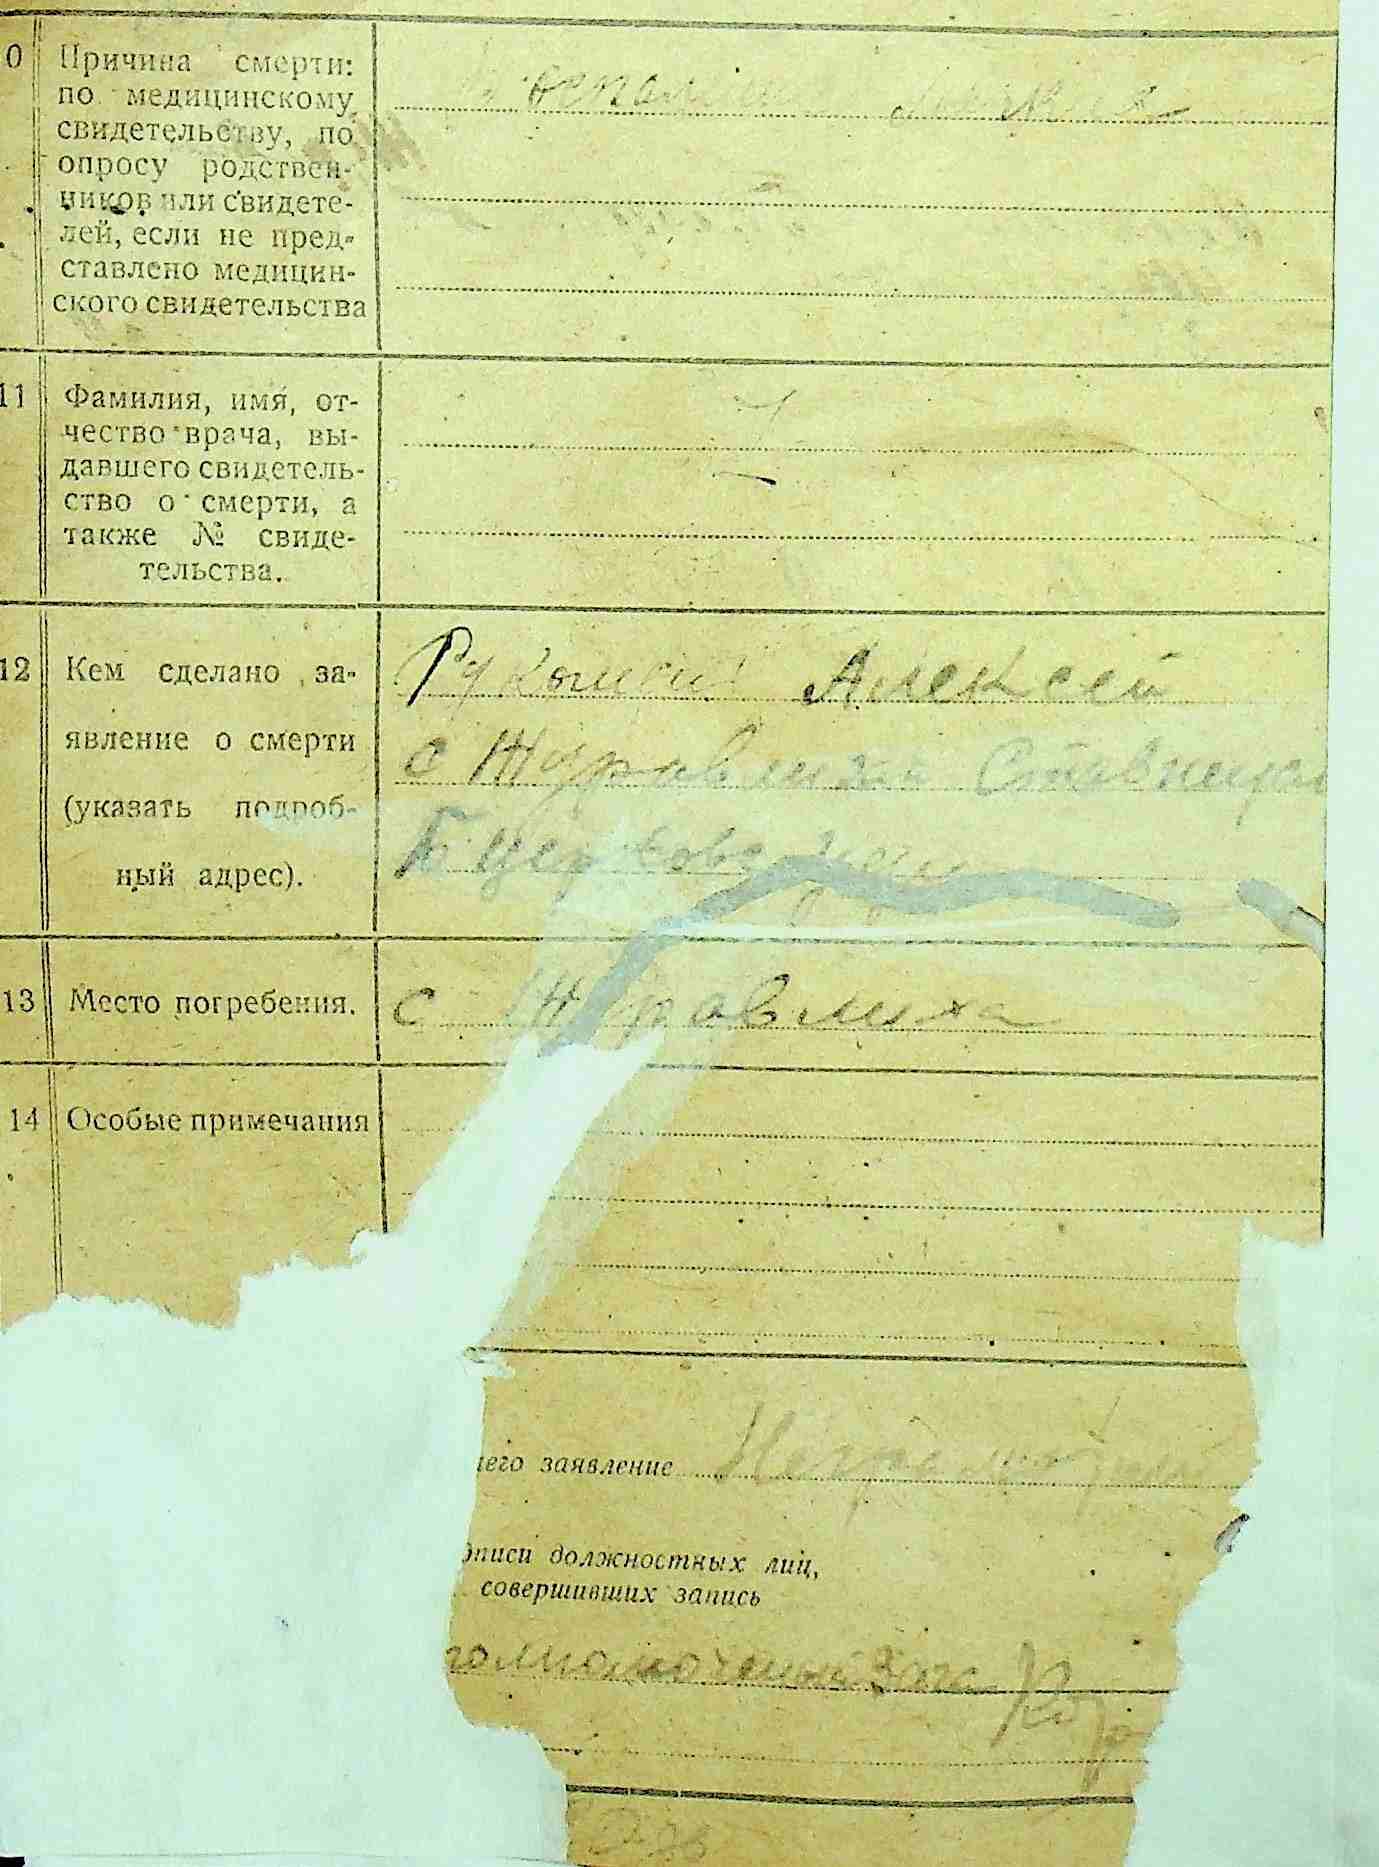 0 Причина смерти:
по медицинскому
свидетельству, по
опросу родствен-
ников или свидете-
лей, если не пред-
ставлено медицин-
ского свидетельства
11 Фамилия, имя, от-
чество врача, вы-
давшего свидетель-
ство о смерти, а
также № свиде-
тельства.
12 Кем сделано за-
явление о смерти
(указать подроб-
ный адрес).
Алексей
с Журавлиха
13 Место погребения.
с Журавлиха
14 Особые примечания
его заявление Неграмотный
дписи должностных лиц,
совершивших запись